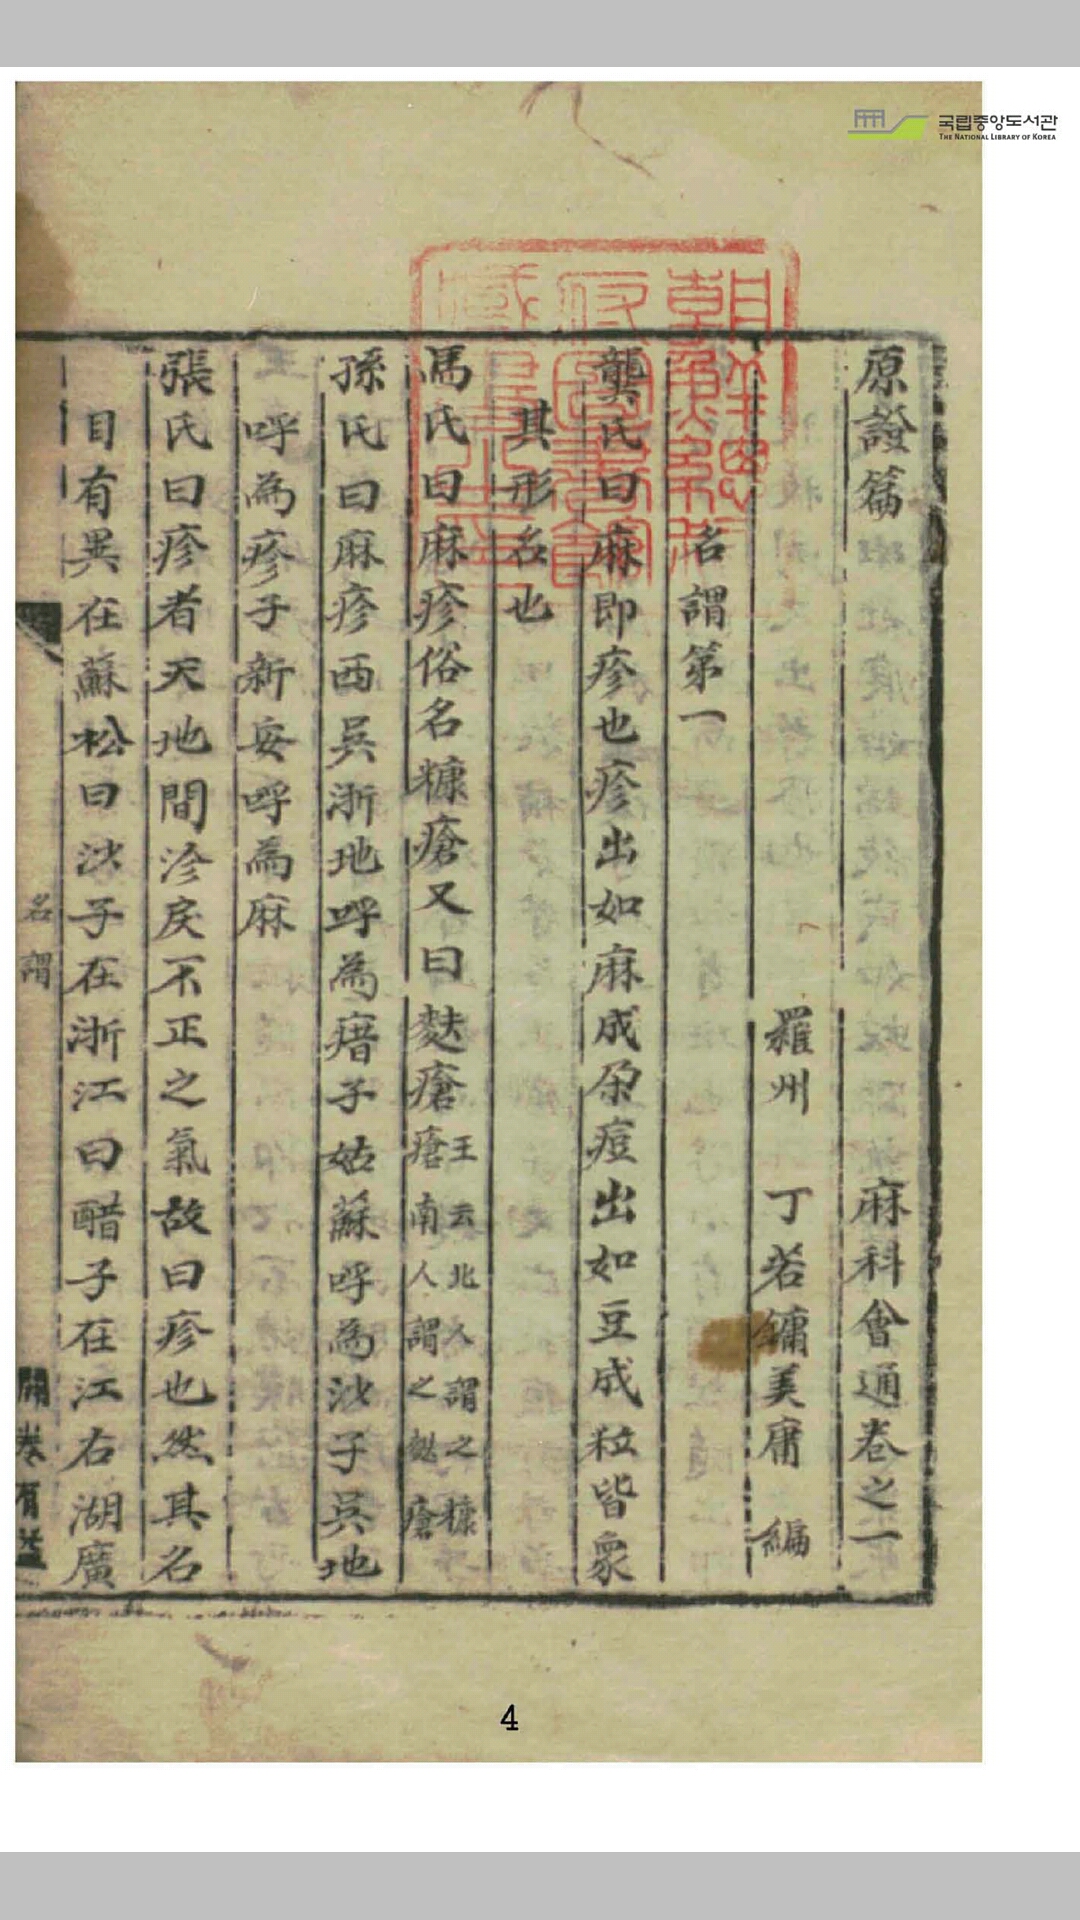 국립중앙도서관
THE NATIONAL LIBRARY OF KOREA
原證篇 麻科會通卷之一
羅州 丁若鏞美庸 編
名謂第一
龔氏曰麻即疹也疹出如麻成朶痘出如豆成粒皆象
其形名也
馬氏曰麻疹俗名糠瘡又曰麩瘡王云北人謂之糠瘡南人謂之麩瘡
孫氏曰麻疹西吳浙地呼為瘄子姑蘇呼為沙子吳地
呼為疹子新安呼為麻
張氏曰疹者天地間沴戾不正之氣故曰疹也然其名
目有異在蘇松曰沙子在浙江曰醋子在江右湖廣
名謂
開卷有益
朝鮮總督府圖書館藏書之印
4